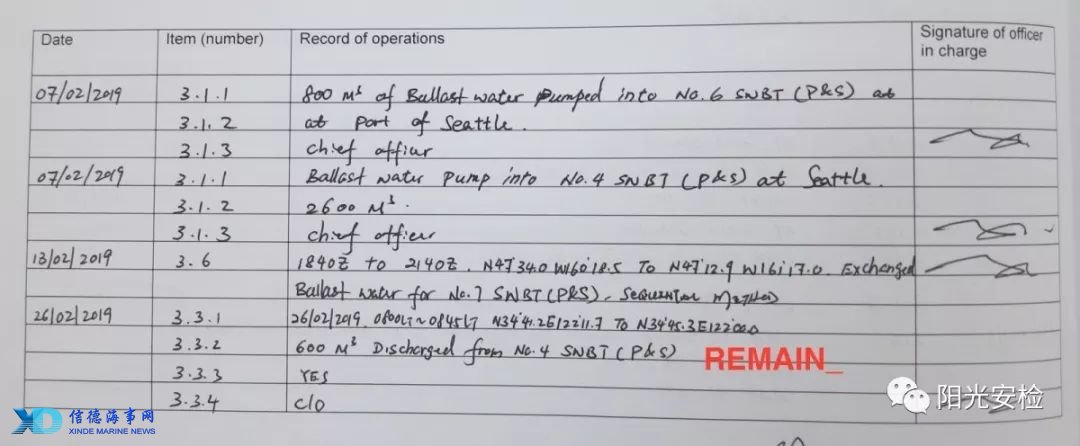 Date Item (number) Record of operations Signature of officer
in charge
07/02/2019 3.1.1 800 M³ of Ballast water Pumped into No.6 SWBT (P&S) at
3.1.2 at Port of Seattle.
3.1.3 chief officer
07/02/2019 3.1.1 Ballast water Pump into No.4 SWBT (P&S) at Seattle.
3.1.2 2600 M³.
3.1.3 chief officer
13/02/2019 3.6 1840Z to 2140Z. N47°34.0 W160°18.5 To N47°12.9 W161°17.0. Exchanged
Ballast water for No.7 SWBT (P&S). Sequential Method
26/02/2019 3.3.1 26/02/2019 0800LT~0845LT N34°41.2 E122°11.7 To N34°45.3 E122°
3.3.2 600 M³ Discharged from No.4 SWBT (P&S) REMAIN_
3.3.3 YES
3.3.4 C/O
阳光安检
XD 信德海事网
XINDE MARINE NEWS